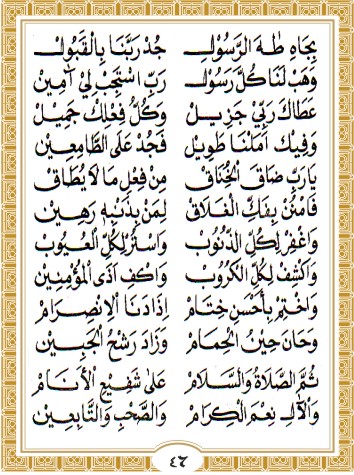 بِجَاهِ طٰهَ الرَّسُوْلِ جُدْ رَبَّنَا بِالْقَبُوْلِ
وَهَبْ لَنَا كُلَّ رَسُوْلِ رَبِّ اسْتَجِبْ لِيْ آمِيْن
عَطَاكَ رَبِّيْ جَزِيْل وَكُلُّ فِعْلِكْ جَمِيْل
وَفِيْكَ اَمَلْنَا طَوِيْل فَجُدْ عَلَى الطَّامِعِيْن
يَارَبِّ ضَاقَ الْخِنَاقْ مِنْ فِعْلِ مَا لَا يُطَاقْ
فَامْنُنْ بِفَكِّ الْغَلَاقْ لِمَنْ بِذَنْبِهِ رَهِيْن
وَاغْفِرْ لِكُلِّ الذُّنُوْبْ وَاسْتُرْ لِكُلِّ الْعُيُوْبْ
وَاكْشِفْ لِكُلِّ الْكُرُوْبْ وَاكْفِ اَذَى الْمُؤْمِنِيْن
وَاخْتِمْ بِأَحْسَنِ خِتَامْ اِذَا دَنَا الْاِنْصِرَامْ
وَحَانَ حِيْنُ الْحِمَامْ وَزَادَ رَشْحُ الْجَبِيْن
ثُمَّ الصَّلَاةُ وَالسَّلَامْ عَلَى شَفِيْعِ الْأَنَامْ
وَالْاٰلِ نِعْمَ الْكِرَامْ وَالصَّحْبِ وَالتَّابِعِيْن
٤٦